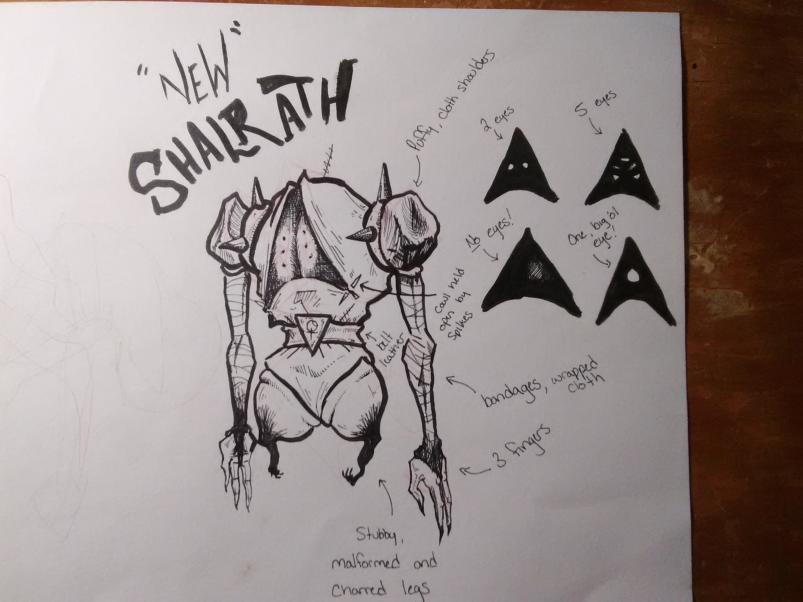 "NEW"
SHALRATH
Puffy, cloth shoulders
2 eyes
5 eyes
No eyes!
One, big ol'
eye!
Cowl held
open by
spikes
belt
leather
bandages, wrapped
cloth
3 fingers
Stubby,
malformed and
charred legs